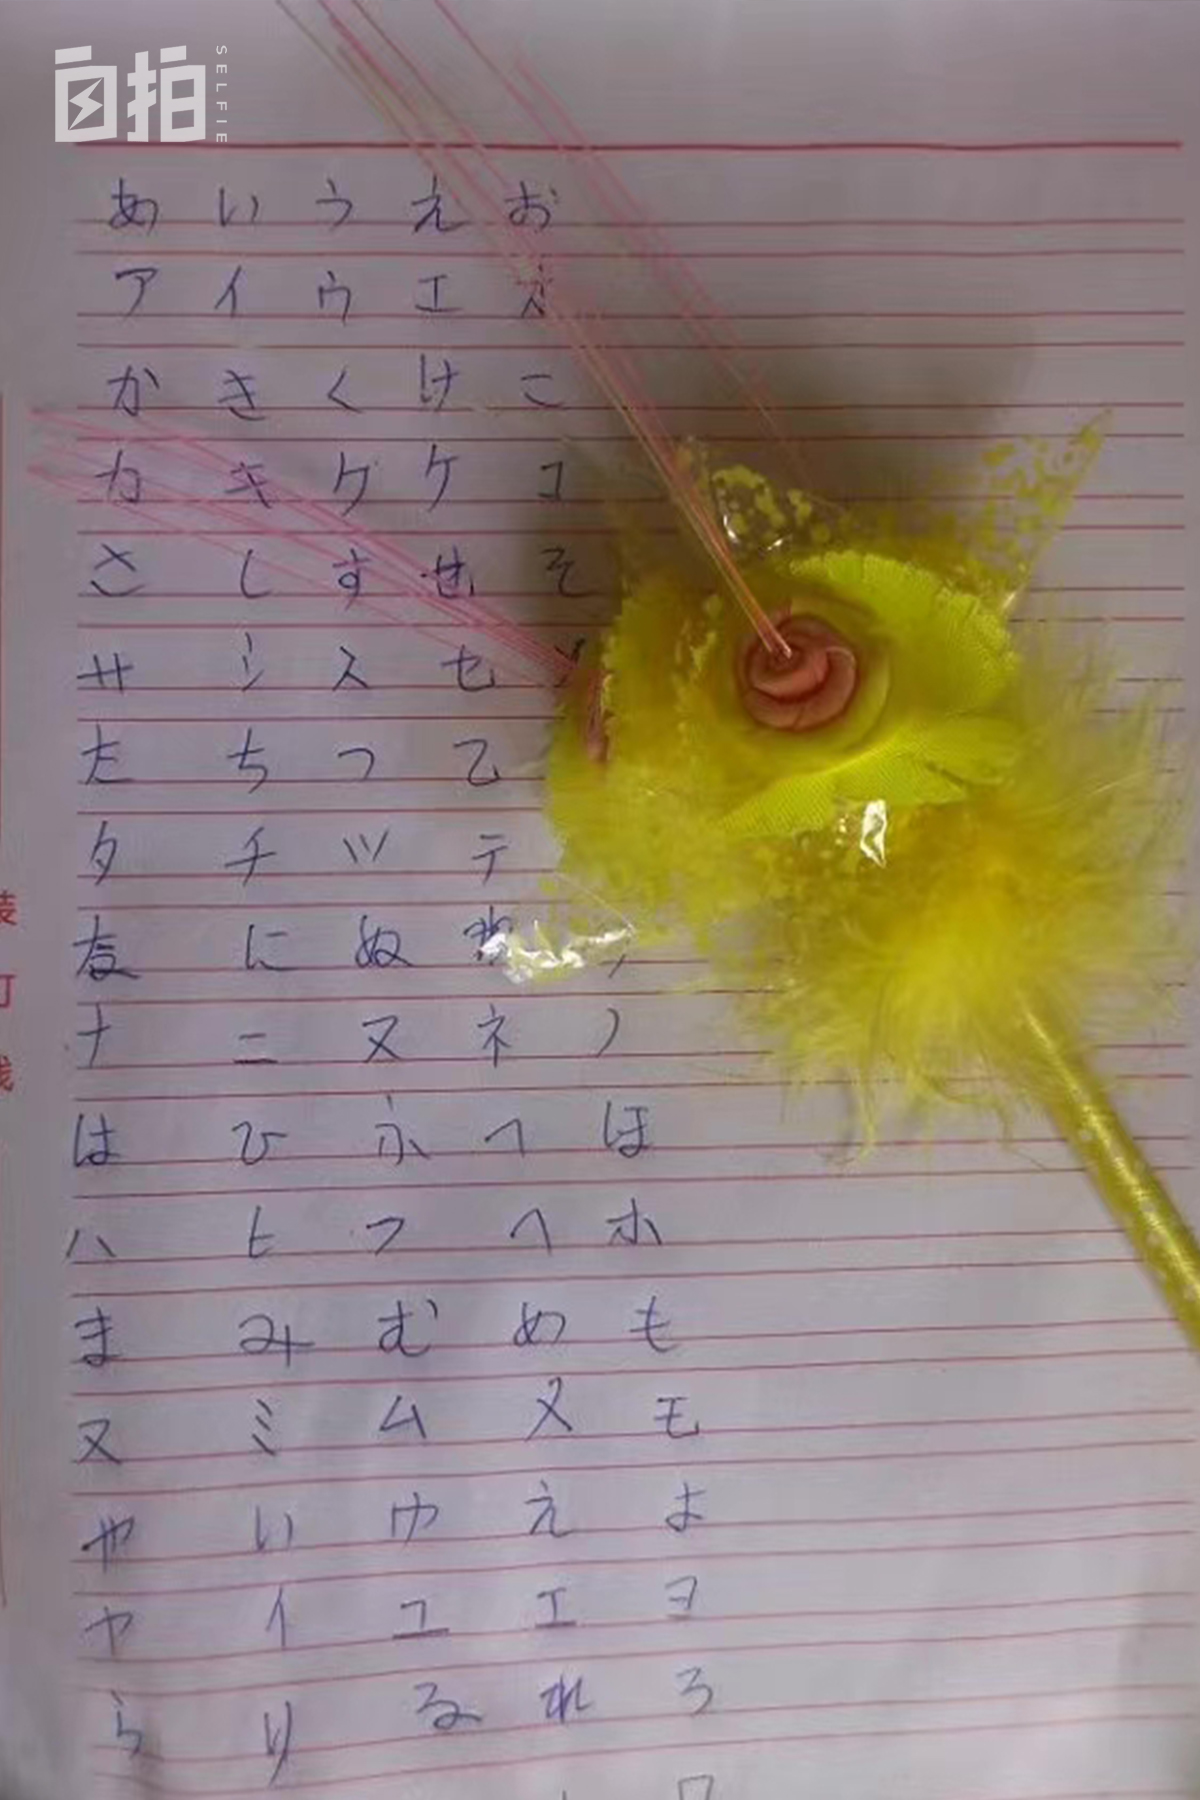 自拍 SELFIE
あ い う え お
ア イ ウ エ オ
か き く け こ
カ キ ク ケ コ
さ し す せ そ
サ シ ス セ ソ
た ち つ て
タ チ ツ テ
な に ぬ ね
ナ ニ ヌ ネ ノ
は ひ ふ へ ほ
ハ ヒ フ ヘ ホ
ま み む め も
ヌ ミ ム メ モ
や い ゆ え よ
ヤ イ ユ エ ヨ
ら り る れ ろ
装
订
线